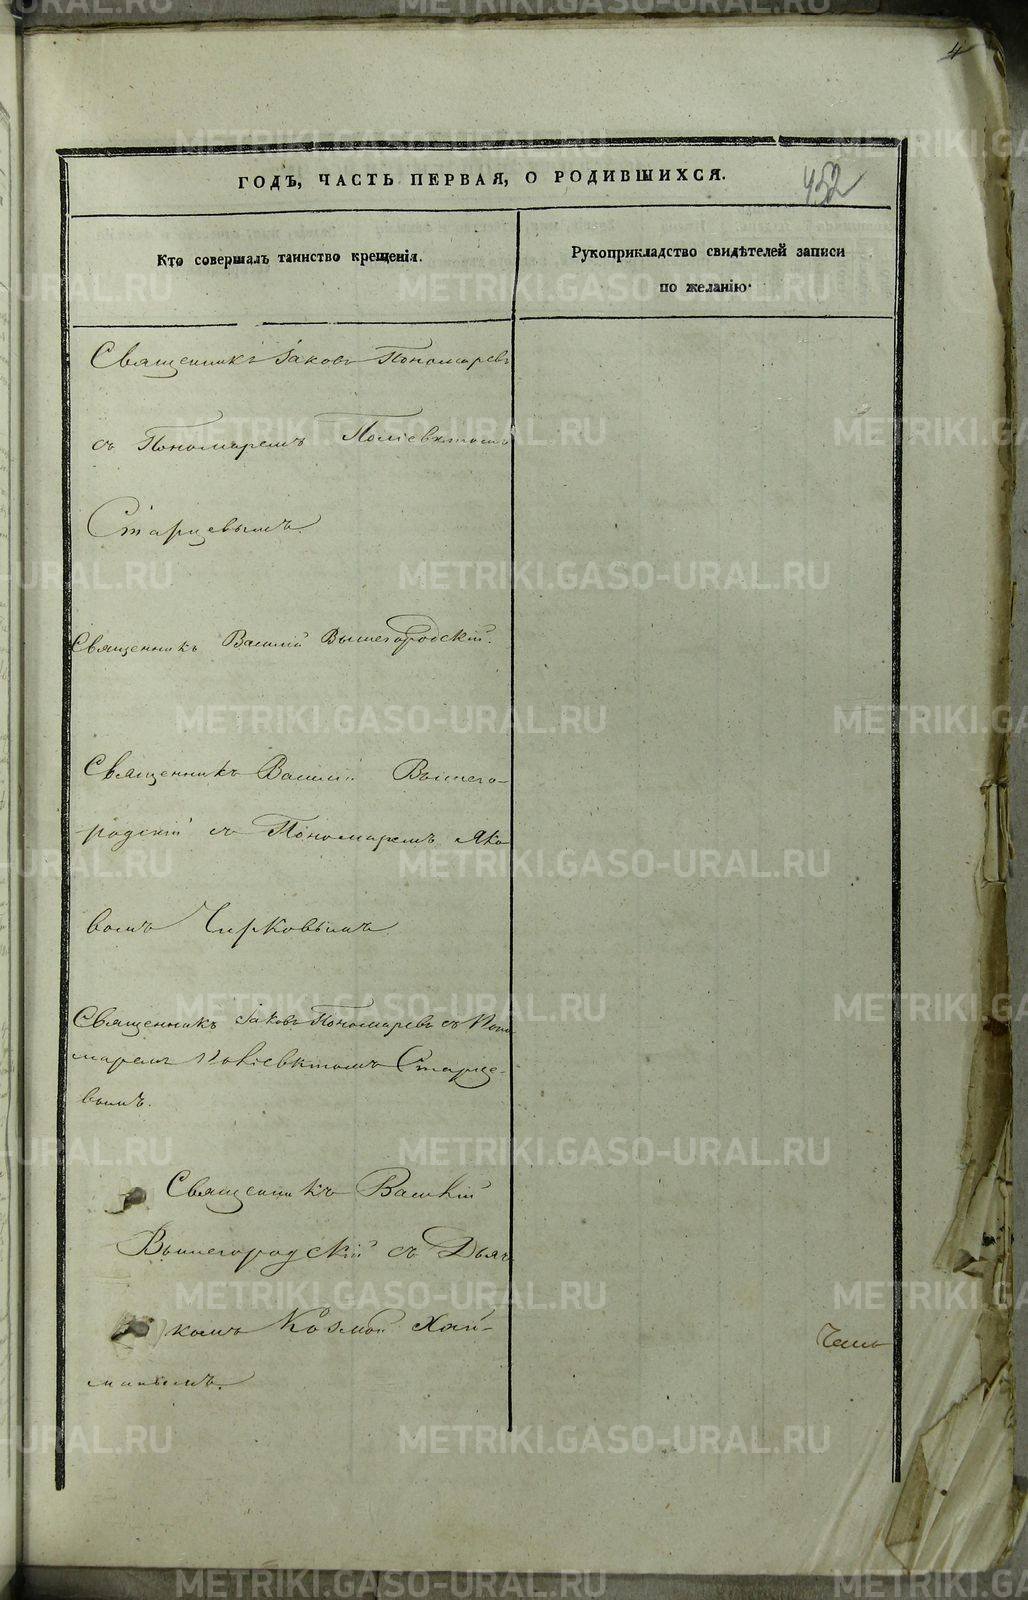 4
ГОДЪ, ЧАСТЬ ПЕРВАЯ, О РОДИВШИХСЯ.
452
Кто совершалъ таинство крещенія.
Рукоприкладство свидѣтелей записи
по желанію.
Священникъ Іаковъ Пономаревъ
съ Пономаремъ Поліевктомъ
Старцевымъ.
Священникъ Василій Вышегородскій.
Священникъ Василій Вышего-
родскій съ Пономаремъ Яко
вомъ Чирковымъ.
Священникъ Іаковъ Пономаревъ съ Поно
маремъ Поліевктомъ Старце-
вымъ.
Священникъ Василій
Вышегородскій съ Дьяч
комъ Козмой Хай-
мывымъ.
METRIKI.GASO-URAL.RU